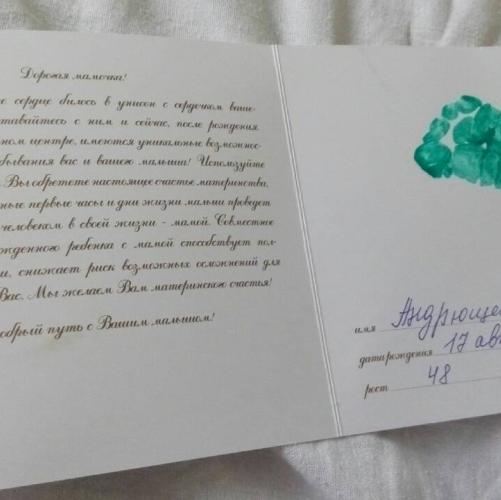 Дорогая мамочка!
е сердце билось в унисон с сердечком ваше-
тавайтесь с ним и сейчас, после рождения.
ном центре, имеются уникальные возможнос-
бывания вас и вашего малыша! Используйте
Вы обретете настоящее счастье материнства,
ные первые часы и дни жизни малыш проведет
человеком в своей жизни - мамой. Совместное
жденного ребенка с мамой способствует пол-
и, снижает риск возможных осложнений для
Вас. Мы желаем Вам материнского счастья!
обрый путь с Вашим малышом!
имя Андрюше
дата рождения 17 ав
рост 48